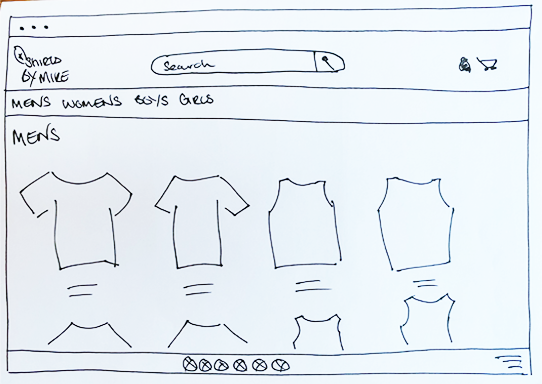 Shirts
by MIKE
Search
MENS WOMENS BOYS GIRLS
MENS